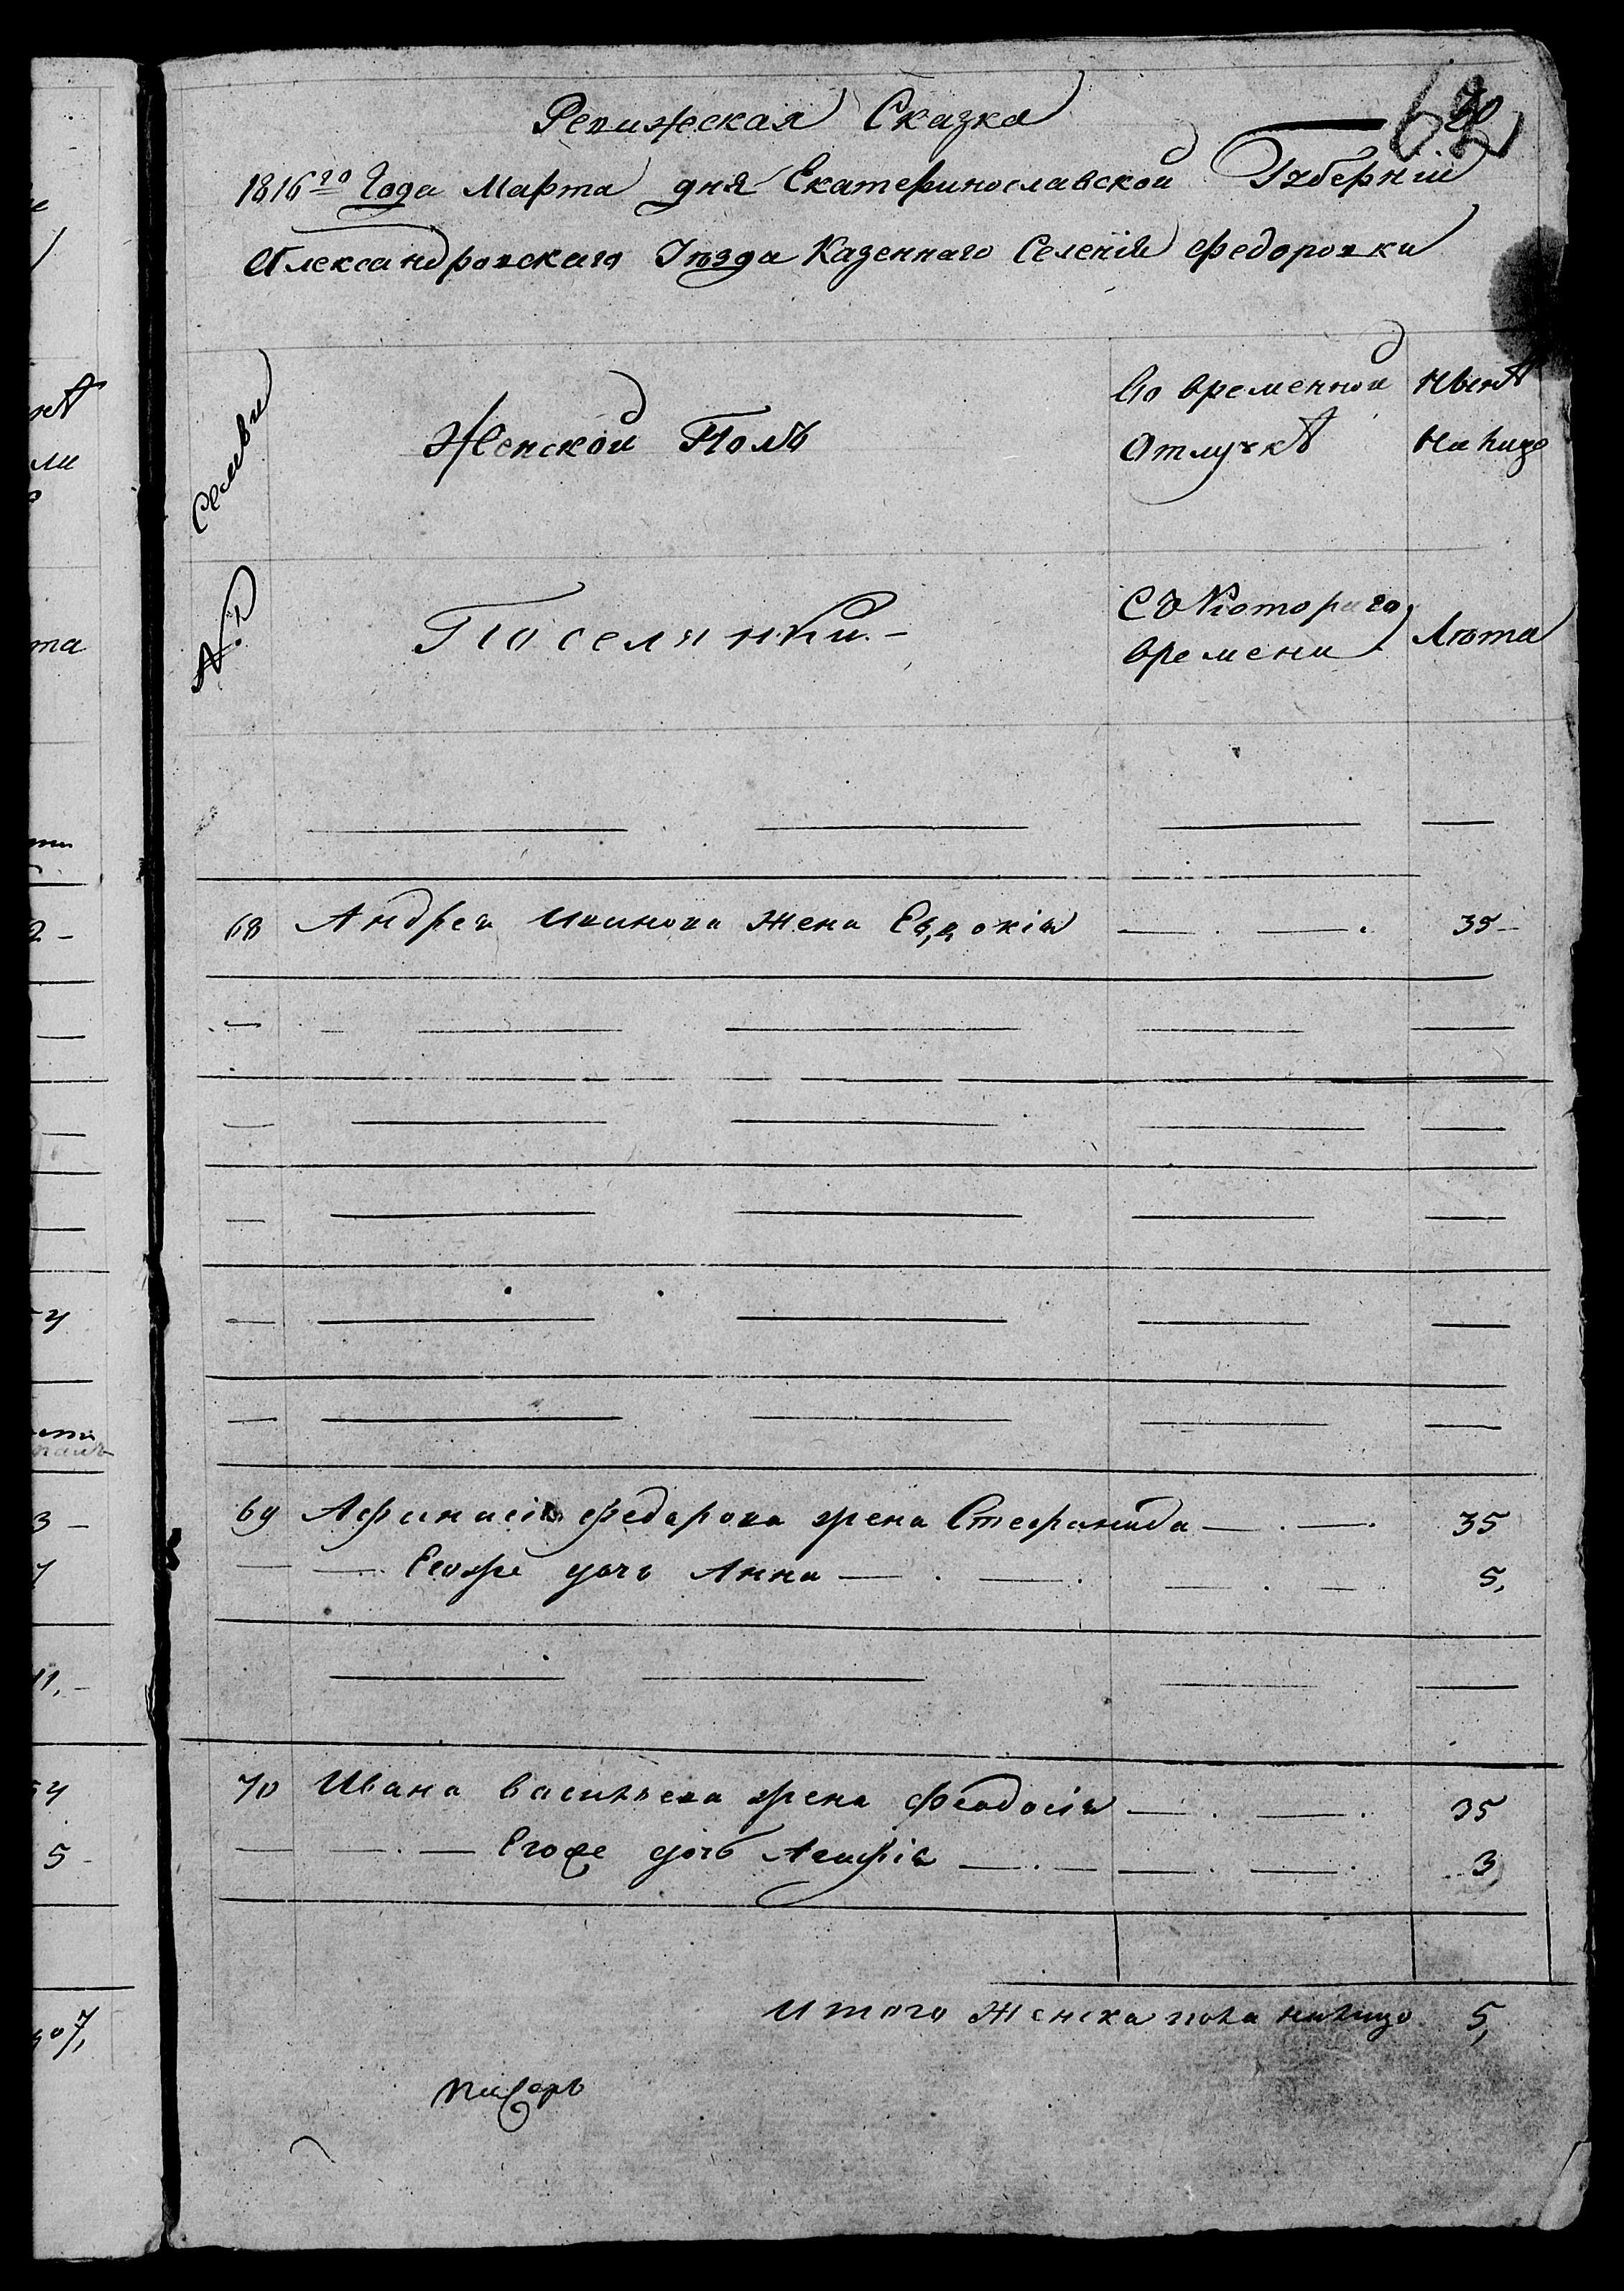 Ревижская Сказка
1816го Года Марта дня Екатеринославской Губерніи
Александровскаго Уезда Казеннаго Селенія Федоровки
Семьи
Женской Полъ
Во временной
Отлучкѣ
Нынѣ
На лицо
№
Поселянки
Съ Котораго
времени
Лѣта
68 Андрея жена Евдокія 35
69 Афанасія Федорова жена Стефанида 35
Егоже дочь Анна 5,
70 Ивана Васильева жена Феодосія 35
Егоже дочь Агафія 3
Итого Женска пола налицо 5,
писарь